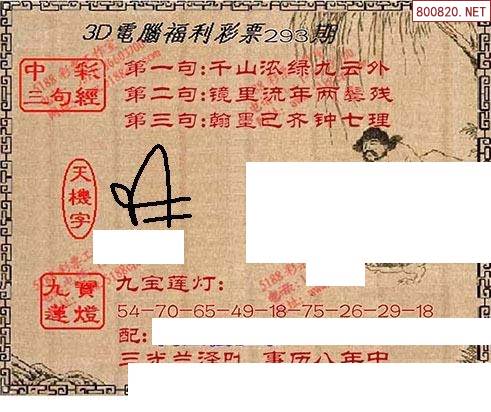 800820.NET
3D電腦福利彩票293期
中彩三句經
第一句:千山浓绿九云外
第二句:镜里流年两鬓残
第三句:翰墨已齐钟七理
天機字
九寶蓮燈
九宝莲灯:
54-70-65-49-18-75-26-29-18
配: